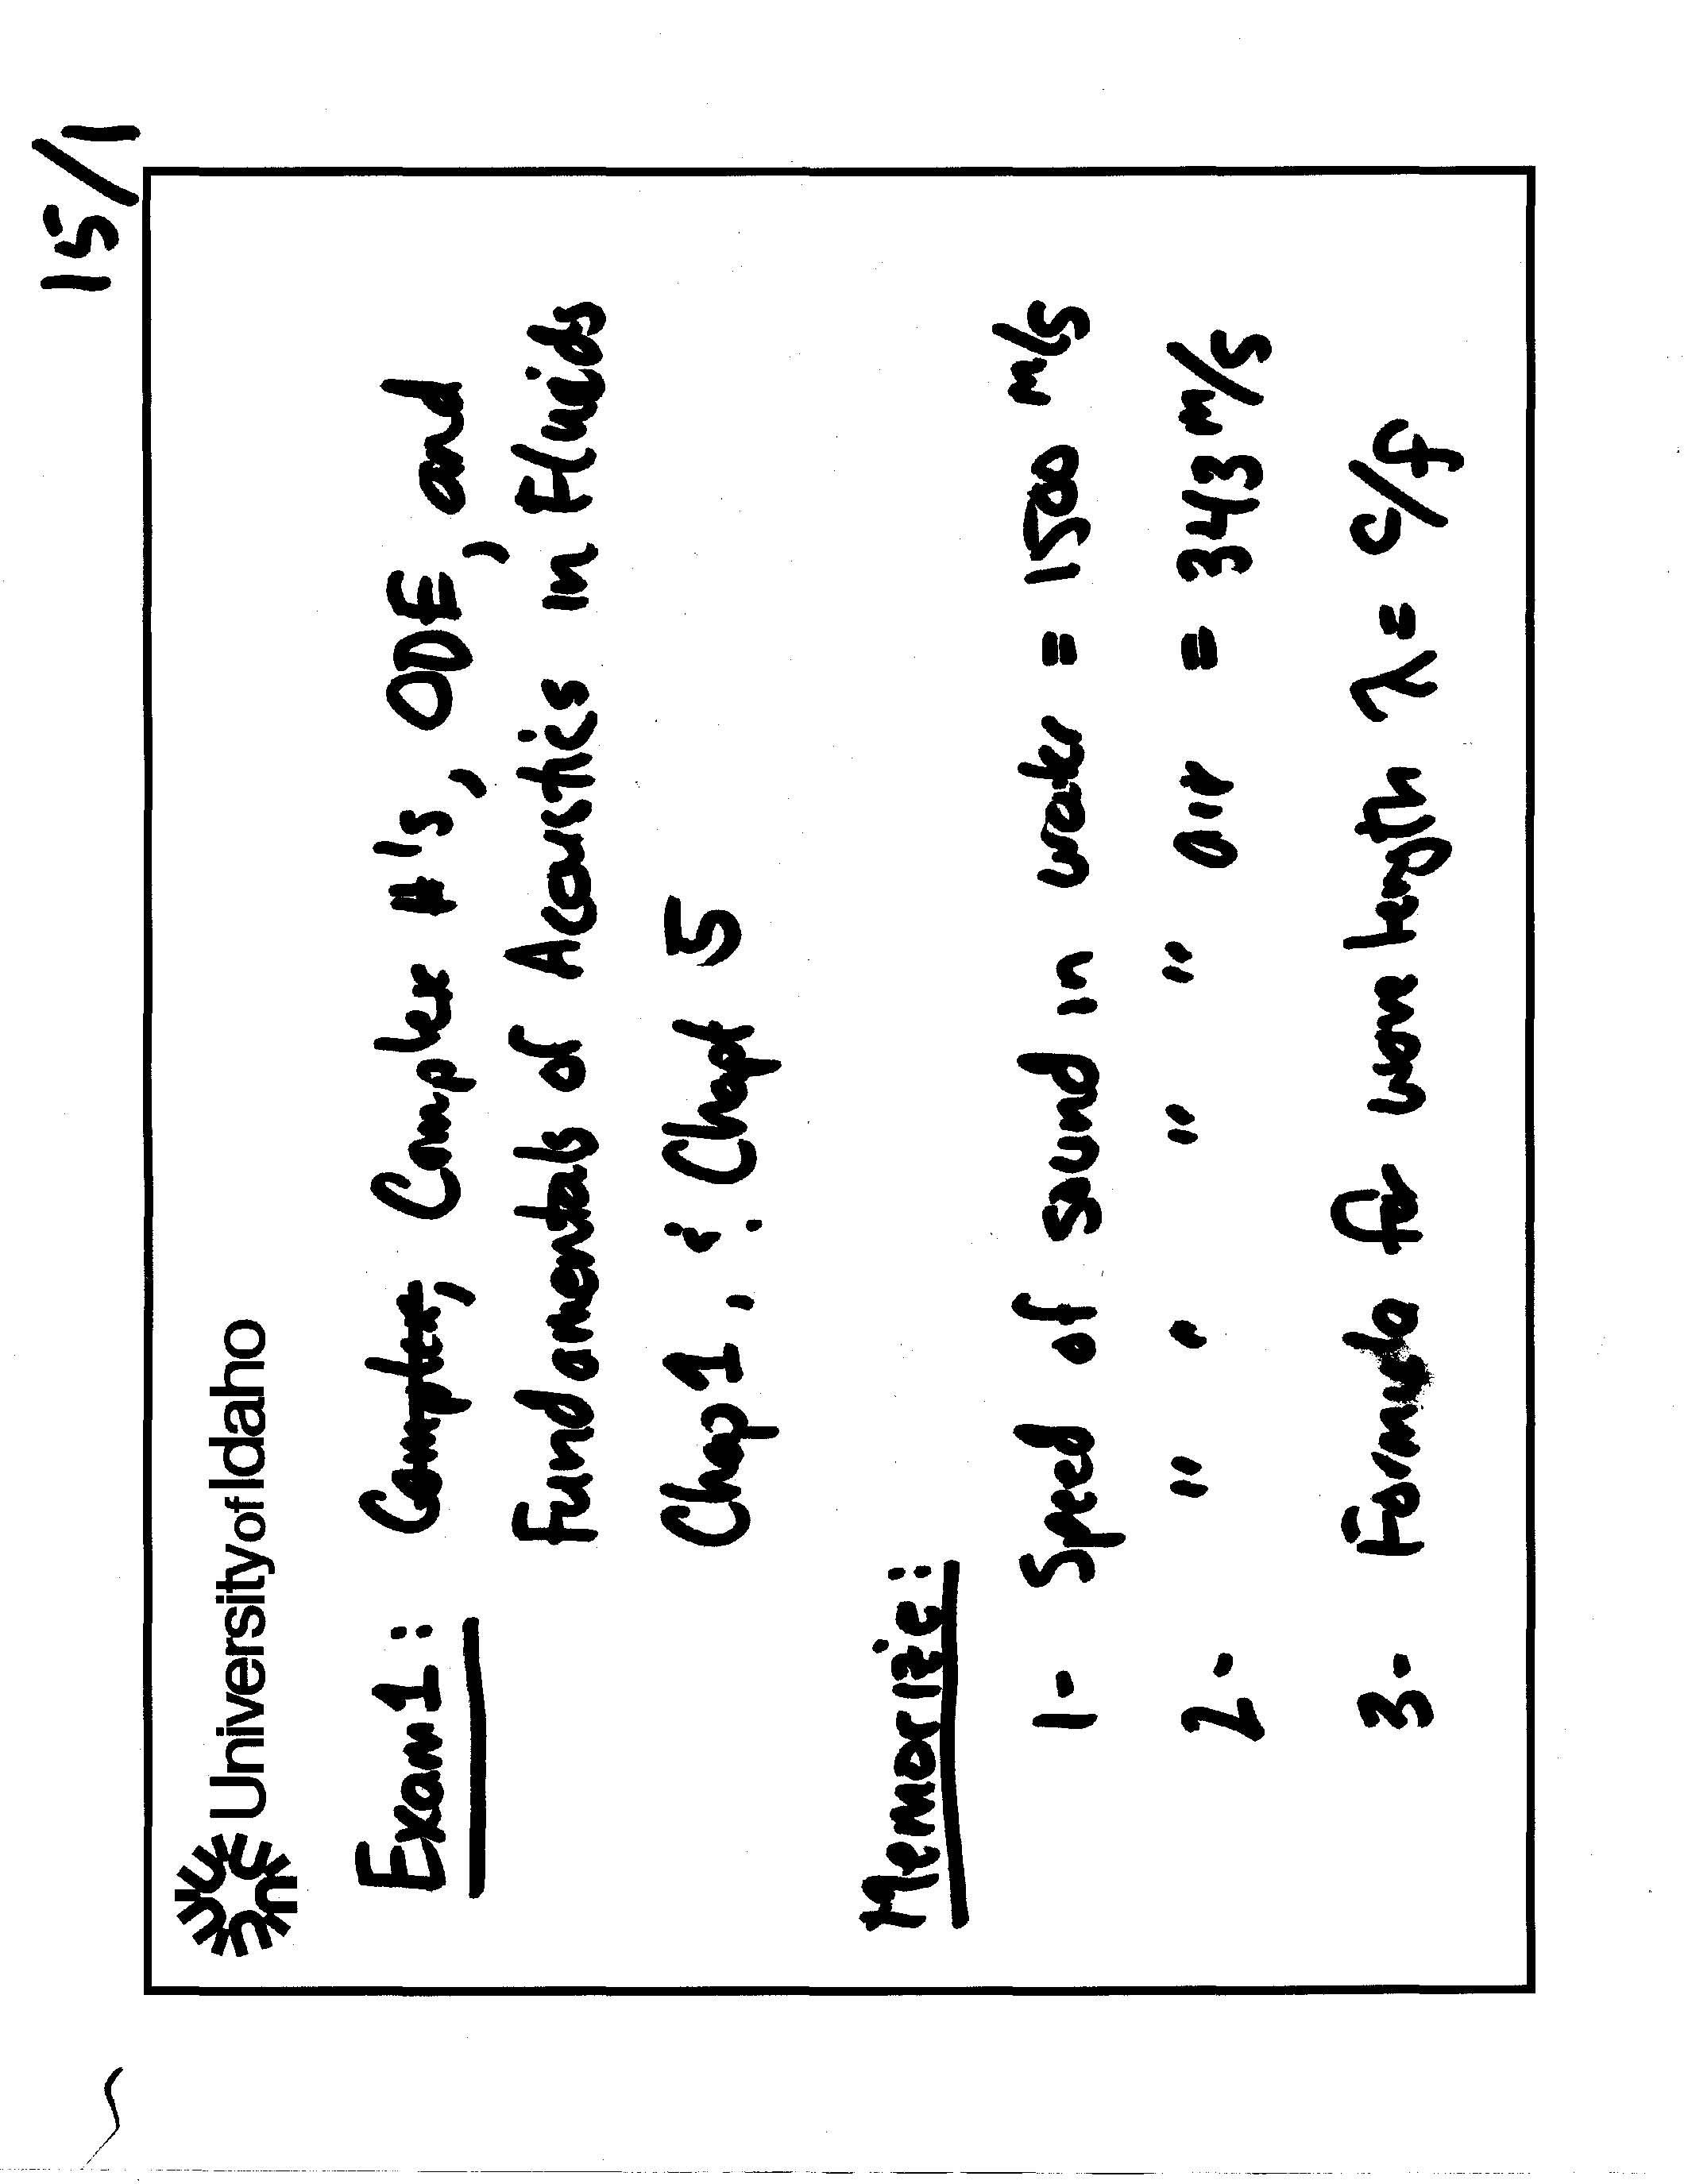 15/1
University of Idaho
Exam 1: Complex, Complex #'s, ODE, and
Fundamentals of Acoustics in Fluids
Chap 1, & Chapt 5
Memorize:
1- Speed of sound in water = 1500 m/s
2- " " " " air = 343 m/s
3- Formula for wave length λ = c/f